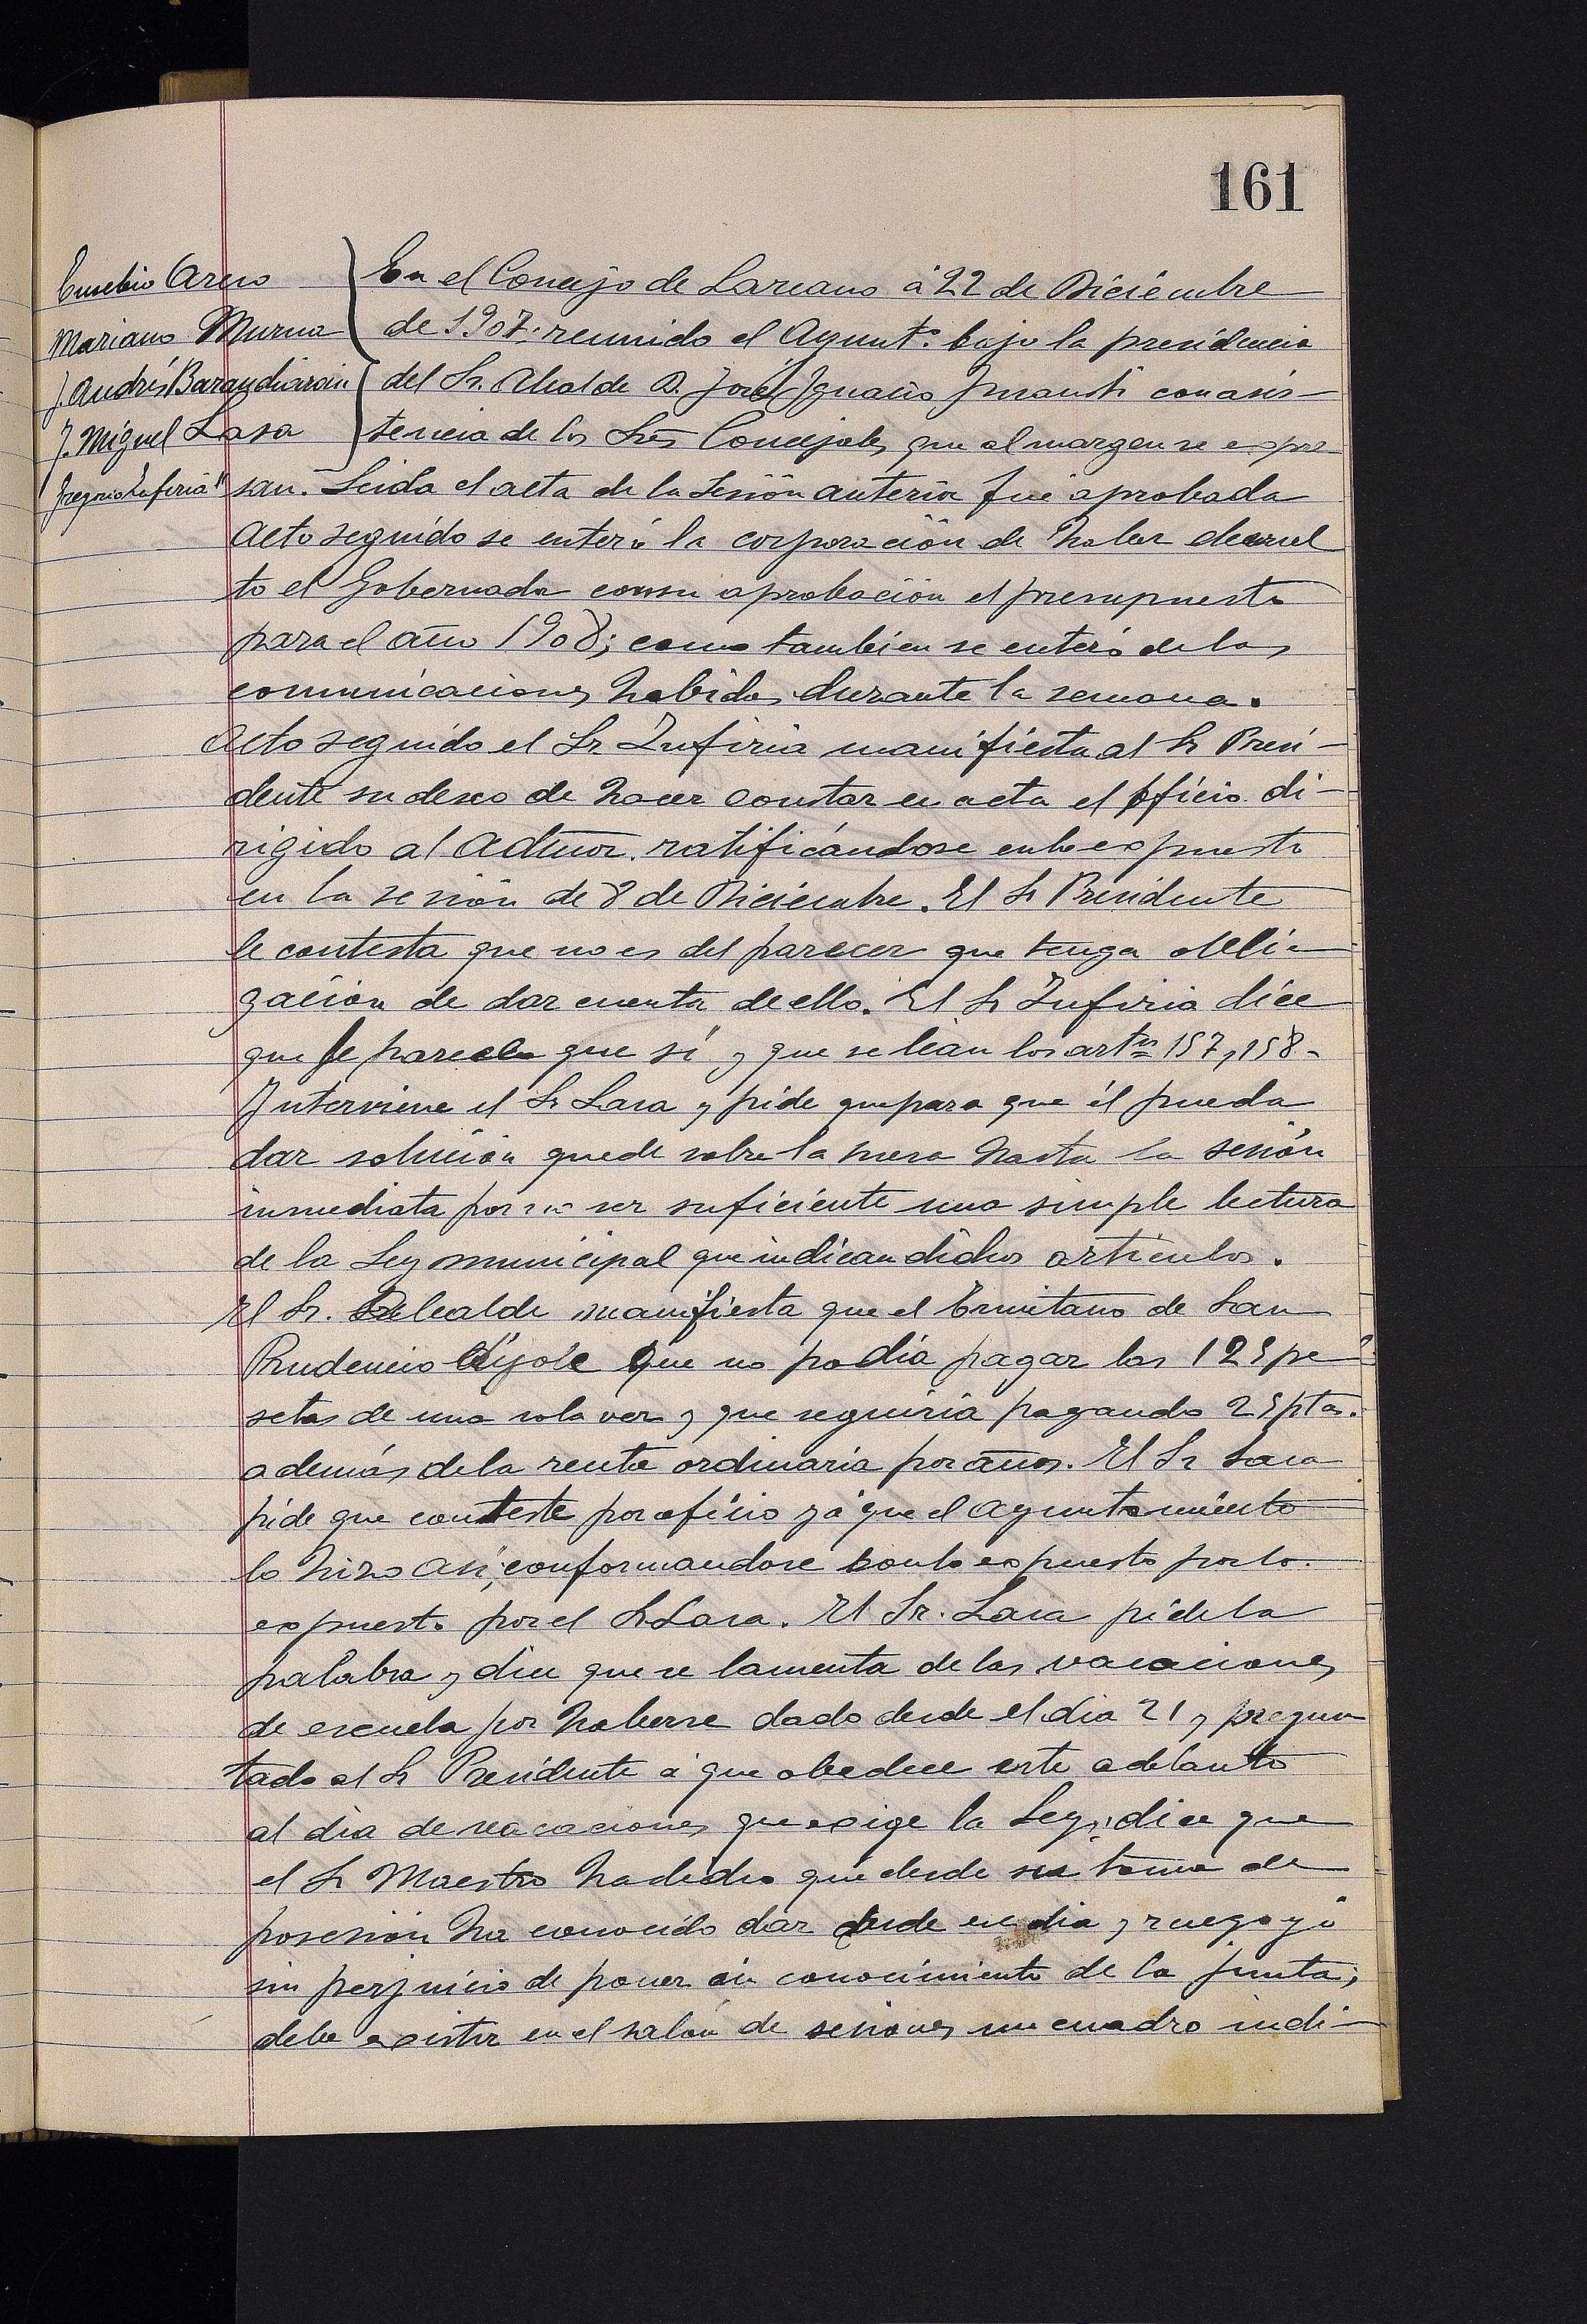 161
Eusebio Areso
Mariano Murua
J. Andrés Barandiarain
J. Miguel Lasa
Gregorio Zufiria
En el Concejo de Lazcano á 22 de Diciembre
de 1907 reunido el Ayunt.o bajo la presidencia
del Sr. Alcalde D. José Ignacio Imaushi con asis-
tencia de los Sres Concejales que al margen se expre-
san. Leida el acta de la sesión anterior fué aprobada
Acto seguido se enteró la corporación de haber devuel
to el Gobernador con su aprobación el presupuesto
para el año 1908; como tambien se enteró de las
comunicaciones habidas durante la semana.
Acto seguido el Sr Zufiria manifiesta al Sr Presi-
dente su deseo de hacer constar en acta el oficio di-
rigido al Admor. ratificándose en lo expuesto
en la sesión de 8 de Diciembre. El Sr Presidente
le contesta que no es del parecer que tenga obli-
gación de dar cuenta de ello. El Sr Zufiria dice
que le parece que si y que se lean los artos 157, 158.
Interviene el Sr Lasa y pide que para que él pueda
dar solución quede sobre la mesa hasta la sesión
inmediata por no ser suficiente una simple lectura
de la Ley municipal que indican dichos articulos.
El Sr. Alcalde manifiesta que el Ermitaño de San
Prudencio díjole que no podia pagar las 125 pe
setas de una sola vez y que seguiria pagando 25 ptas.
además de la renta ordinaria por años. El Sr Lasa
pide que conteste por oficio yá que el ayuntamiento
lo hizo asi, conformandose con lo expuesto por lo
expuesto por el Sr Lasa. El Sr. Lasa pide la
palabra y dice que se lamenta de las vacaciones
de escuela por haberse dado desde el dia 21 y pregun
tado al Sr Presidente á que obedece este adelanto
al dia de vacaciones que exige la Ley; dice que
el Sr Maestro ha dicho que desde su toma de
posesión ha conocido dar desde ese dia y ruego yó
sin perjuicio de poner en conocimiento de la junta;
debe existir en el salón de sesiones un cuadro indi-